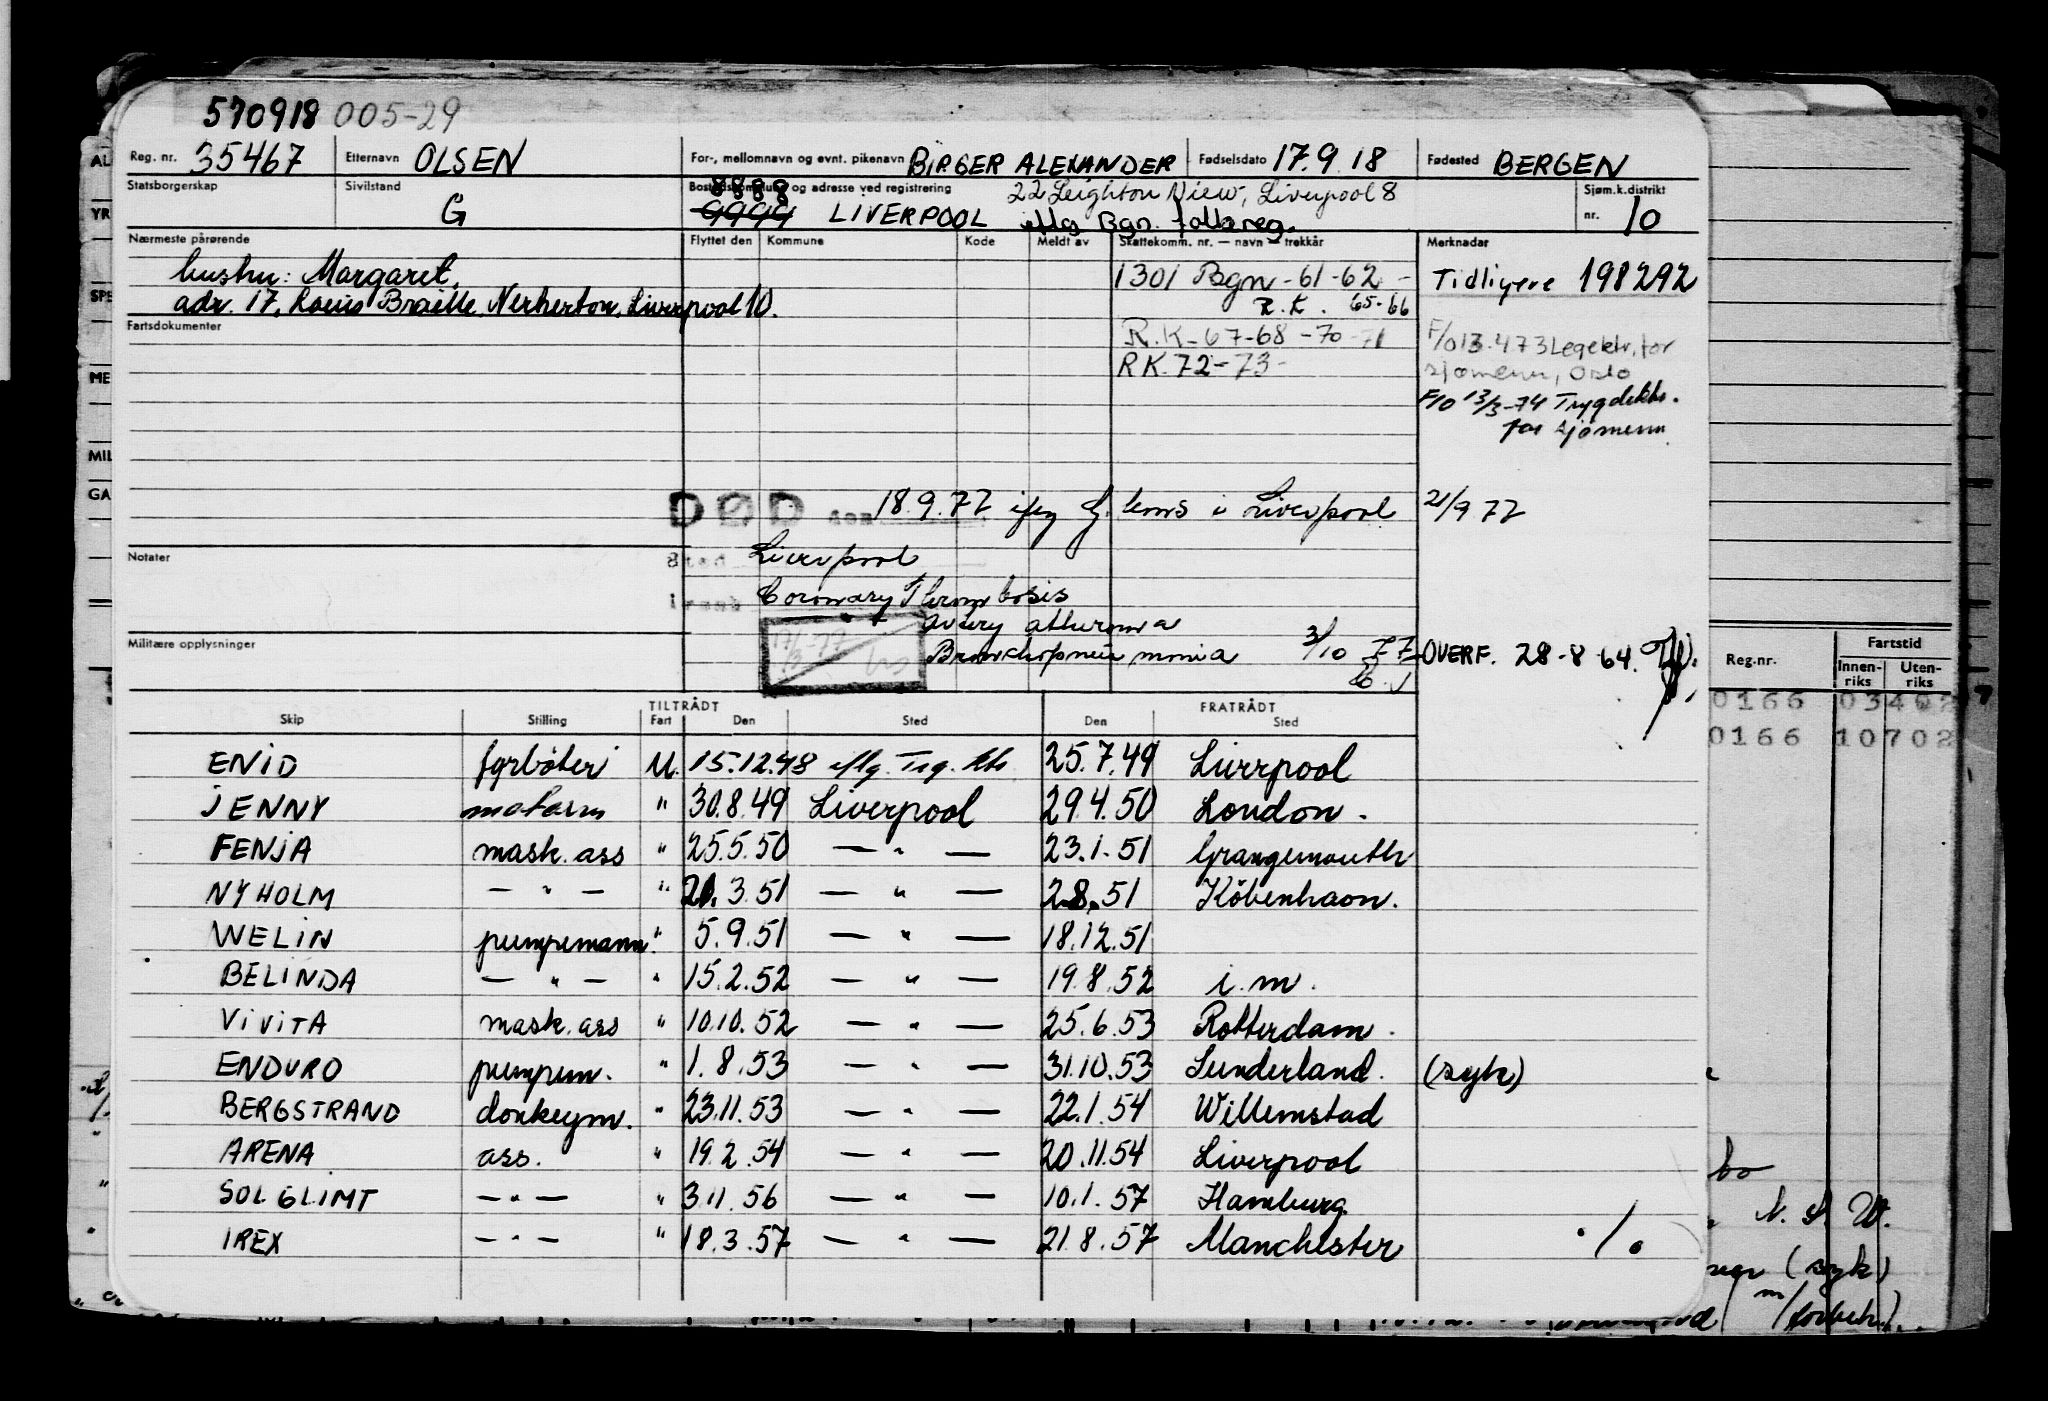 570918 005-29
Reg. nr. 35467 Etternavn OLSEN For-, mellomnavn og evnt. pikenavn BIRGER ALEXANDER Fødselsdato 17.9.18 Fødested BERGEN
Statsborgerskap Sivilstand G Bostedskommune og adresse ved registrering 22 Leighton View, Liverpool 8 Sjøm.k.distrikt
8888 9999 LIVERPOOL iflg Bgn. folkereg. nr. 10
Nærmeste pårørende Flyttet den Kommune Kode Meldt av Skattekomm. nr. — navn — trekkår Merknader
hustru: Margaret, 1301 Bgn - 61-62 - Tidligere 198292
adr. 17, Louis Braille, Netherton, Liverpool 10. R.K. 65-66
Fartsdokumenter R.K-67-68-70-71 F/O 13.473 Legektr. for
RK.72-73- sjømenn, Oslo
F/O 13/3-74 Trygdektr.
for sjømenn
DØD den 18.9.77 iflg g. kons i Liverpool 21/9 77
Notater Sted Liverpool
Årsak Coronary Thrombosis
" artery atheroma
Militære opplysninger Bronchopneumonia 3/10 77 OVERF. 28-8-64.
Reg.nr. Fartstid
Innenriks Utenriks
0166 03402
0166 10702
TILTRÅDT FRATRÅDT
Skip Stilling Fart Den Sted Den Sted
ENID fyrbøter U. 15.12.48 iflg. Trg. ktr. 25.7.49 Liverpool
JENNY motorm " 30.8.49 Liverpool 29.4.50 London.
FENJA mask. ass " 25.5.50 — " — 23.1.51 Grangemouth
NYHOLM — " — " 21.3.51 — " — 2.8.51 Köbenhavn.
WELIN pumpemann. " 5.9.51 — " — 18.12.51
BELINDA — " — " 15.2.52 — " — 19.8.52 i.m.
VIVITA mask. ass " 10.10.52 — " — 25.6.53 Rotterdam.
ENDURO pumpem. " 1.8.53 — " — 31.10.53 Sunderland. (syk)
BERGSTRAND donkeym. " 23.11.53 — " — 22.1.54 Willemstad
ARENA ass. " 19.2.54 — " — 20.11.54 Liverpool
SOLGLIMT — " — " 3.11.56 — " — 10.1.57 Hamburg
IREX — " — " 18.3.57 — " — 21.8.57 Manchester ./.
N. S. W.
(syk)